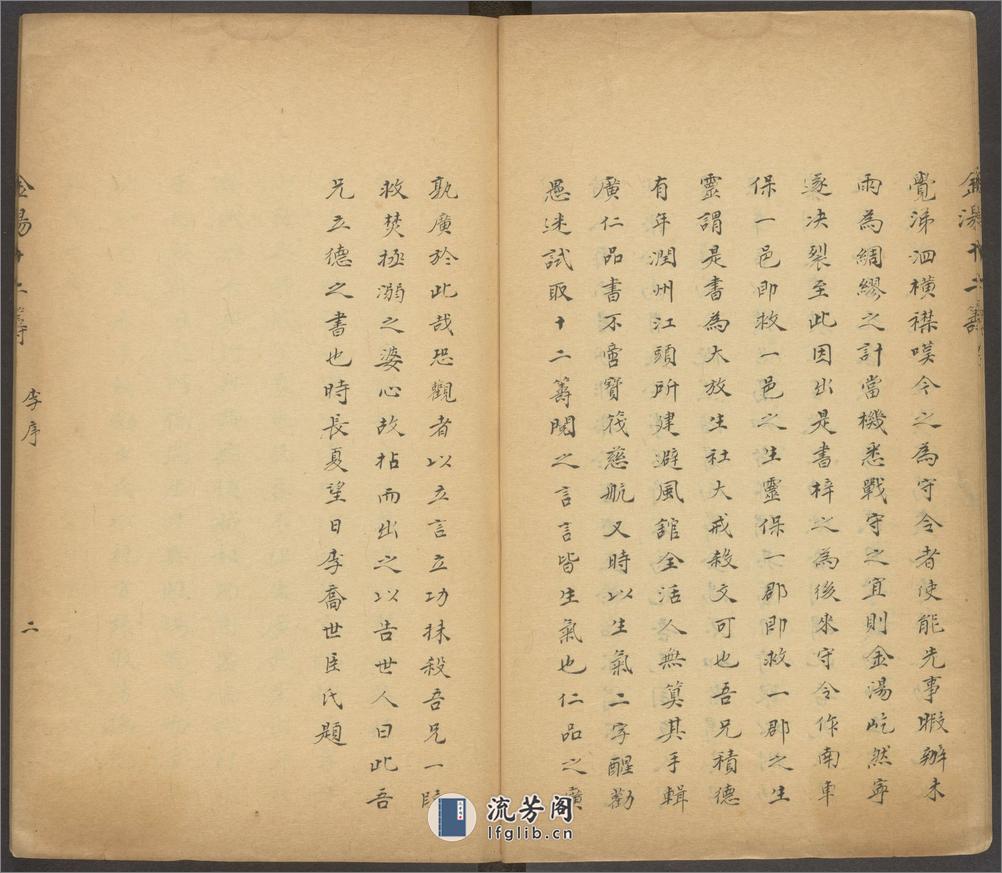 覺涕泗橫襟嘆令之為守令者使能先事暇辦未
雨為綢繆之計當機悉戰守之宜則金湯屹然寧
遂決裂至此因出是書梓之為後來守令作南車
保一邑即救一邑之生靈保一郡即救一郡之生
靈謂是書為大放生社大戒殺文可也吾兄積德
有年潤州江頭所建避風舘全活人無算其手輯
廣仁品書不啻寶筏慈航又時以生氣二字醒勸
愚迷試取十二籌閱之言言皆生氣也仁品之廣
孰廣於此哉恐觀者以立言立功抹殺吾兄一段
救焚拯溺之婆心故拈而出之以告世人曰此吾
兄立德之書也時長夏望日李喬世臣氏題
金湯十二籌
李序
二
流芳阁
lfglib.cn